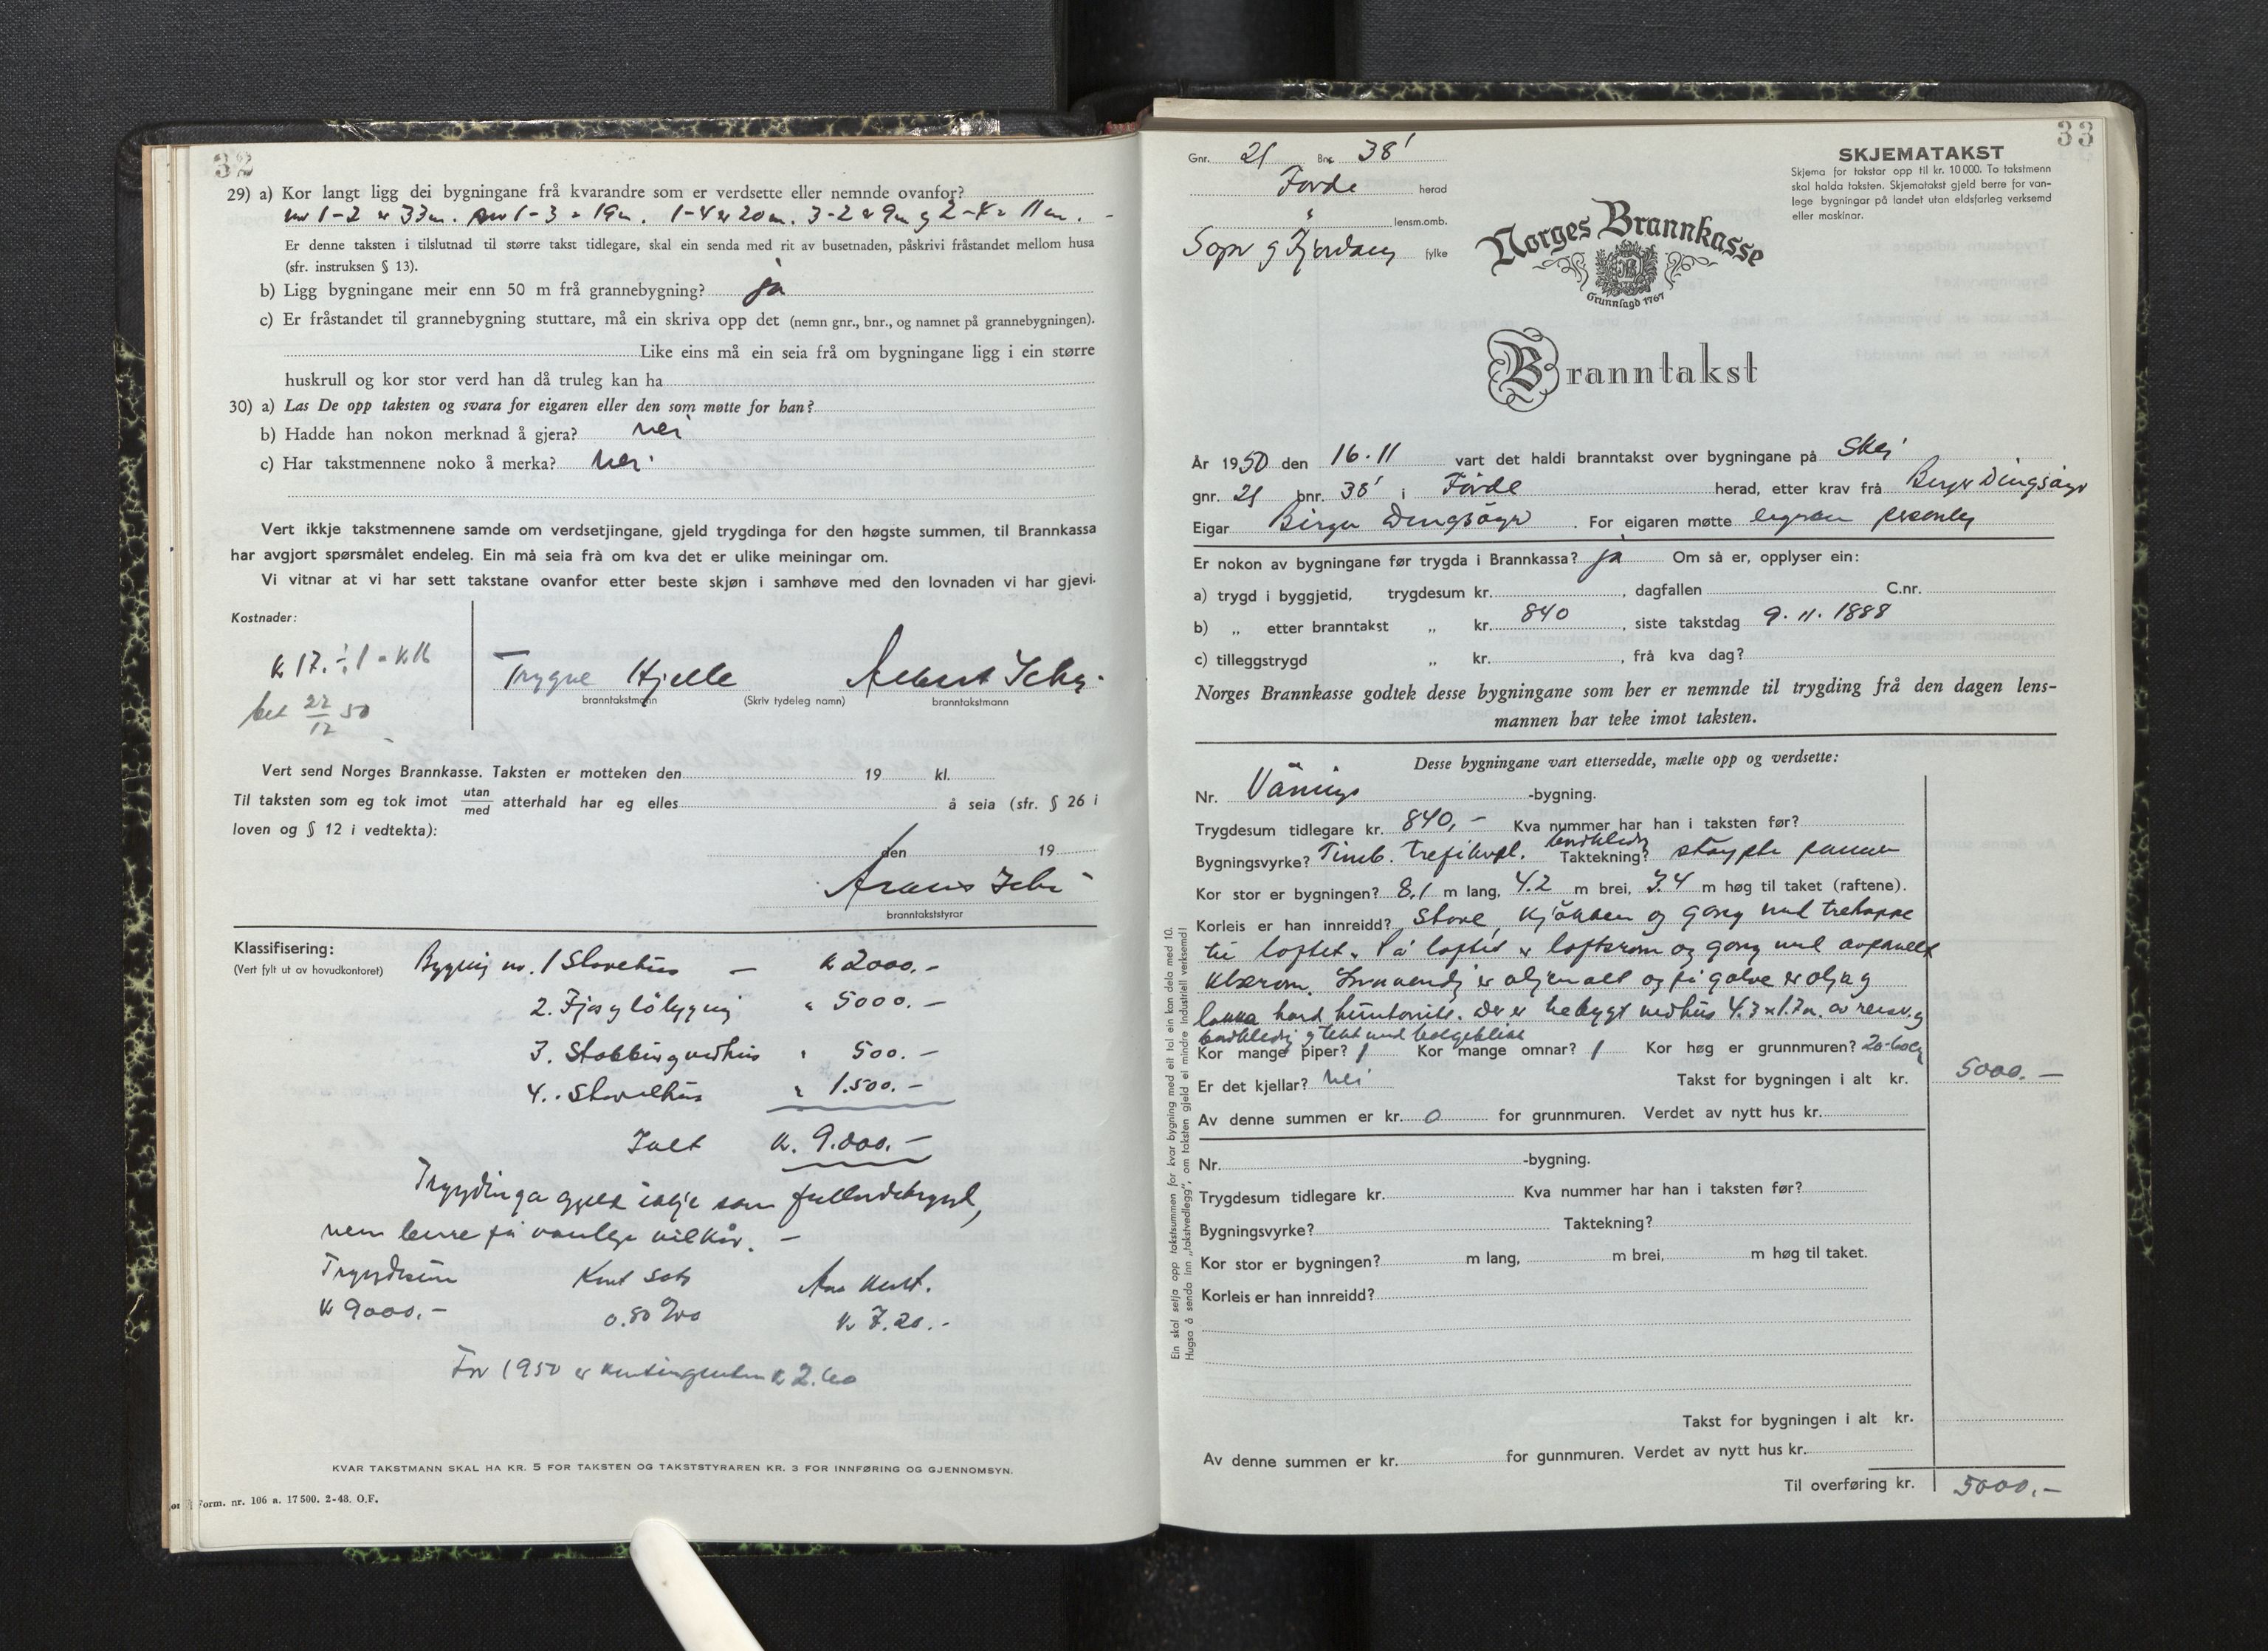 32
29) a) Kor langt ligg dei bygningane frå kvarandre som er verdsette eller nemnde ovanfor?
nr 1-2 er 33m. nr 1-3 = 19m. 1-4 er 20m. 3-2 er 9m og 2-4 = 11m. -
Er denne taksten i tilslutnad til større takst tidlegare, skal ein senda med rit av busetnaden, påskrivi fråstandet mellom husa
(sfr. instruksen § 13).
b) Ligg bygningane meir enn 50 m frå grannebygning? ja
c) Er fråstandet til grannebygning stuttare, må ein skriva opp det (nemn gnr., bnr., og namnet på grannebygningen).
Like eins må ein seia frå om bygningane ligg i ein større
huskrull og kor stor verd han då truleg kan ha
30) a) Las De opp taksten og svara for eigaren eller den som møtte for han?
b) Hadde han nokon merknad å gjera? nei
c) Har takstmennene noko å merka? nei
Vert ikkje takstmennene samde om verdsetjingane, gjeld trygdinga for den høgste summen, til Brannkassa
har avgjort spørsmålet endeleg. Ein må seia frå om kva det er ulike meiningar om.
Vi vitnar at vi har sett takstane ovanfor etter beste skjøn i samhøve med den lovnaden vi har gjevi.
Kostnader:
k 17. ÷ 1 = k 16
bet 22/12 50
Trygve Hjelle
branntakstmann
(Skriv tydeleg namn)
branntakstmann
Vert send Norges Brannkasse. Taksten er motteken den 19 kl.
Til taksten som eg tok imot utan/med atterhald har eg elles å seia (sfr. § 26 i
loven og § 12 i vedtekta):
den 19
branntakststyrar
Klassifisering:
(Vert fylt ut av hovudkontoret)
Bygnig nr. 1 Stovehus - k 2000.-
2. Fjos og löbygnig " 5000.-
3. Stabbur og vedhus " 500.-
4. Stovehus " 1.500.-
Ialt k. 9.000.-
Trygdinga gjeld ikkje som fullverdetrygd,
men berre på vanlege vilkår. -
Trygdesum Kont sats Aars kont.
k 9000.- 0.80 ‰ k 7.20.-
For 1950 er kontingenten k 2.60
KVAR TAKSTMANN SKAL HA KR. 5 FOR TAKSTEN OG TAKSTSTYRAREN KR. 3 FOR INNFØRING OG GJENNOMSYN.
Form. nr. 106 a. 17 500. 2-48. O.F.
33
Gnr. 21 Bnr. 38'
Førde herad
" lensm.omb.
Sogn og Fjordane fylke
SKJEMATAKST
Skjema for takstar opp til kr. 10 000. To takstmenn
skal halda taksten. Skjematakst gjeld berre for van-
lege bygningar på landet utan eldsfarleg verksemd
eller maskinar.
Norges Brannkasse
Grunnlagd 1767
Branntakst
År 1950 den 16.11 vart det haldi branntakst over bygningane på Skei
gnr. 21 bnr. 38' i Förde herad, etter krav frå Birger Dingsöyr
Eigar Birger Dingsöyr. For eigaren møtte eigaren personleg
Er nokon av bygningane før trygda i Brannkassa? ja Om så er, opplyser ein:
a) trygd i byggjetid, trygdesum kr. , dagfallen C.nr.
b) „ etter branntakst „ kr. 840 , siste takstdag 9.11.1888
c) tilleggstrygd „ kr. , frå kva dag?
Norges Brannkasse godtek desse bygningane som her er nemnde til trygding frå den dagen lens-
mannen har teke imot taksten.
Desse bygningane vart ettersedde, mælte opp og verdsette:
Nr. Vånings -bygning.
Trygdesum tidlegare kr. 840,- Kva nummer har han i taksten før?
bordkledn
Bygningsvyrke? Timb. trefiberpl. Taktekning? støypte panner
Kor stor er bygningen? 8.1 m lang, 4.2 m brei, 3.4 m høg til taket (raftene).
Korleis er han innreidd? Stove, kjökken og gang med tretrappe
til loftet. På loftet er loftsrom og gang med avpanelt
klærom. Innvendig er oljemalt og på golve er olja og
lakka hard huntonitt. Der er tebygt vedhus 4.3 x 1.7 m. av reisv. og
bordkledn og tekt med bølgeblikk
Kor mange piper? 1 Kor mange omnar? 1 Kor høg er grunnmuren? 20-60cm
Er det kjellar? nei Takst for bygningen i alt kr. 5000.-
Av denne summen er kr. 0 for grunnmuren. Verdet av nytt hus kr.
Nr. -bygning.
Trygdesum tidlegare kr. Kva nummer har han i taksten før?
Bygningsvyrke? Taktekning?
Kor stor er bygningen? m lang, m brei, m høg til taket.
Korleis er han innreidd?
Takst for bygningen i alt kr.
Av denne summen er kr. for gunnmuren. Verdet av nytt hus kr.
Til overføring kr. 5000.-
Ein skal setja opp takstsummen for kvar bygning med eit tal ein kan dela med 10.
Hugsa å senda inn „takstvedlegg", om taksten gjeld ei mindre industriell verksemd!